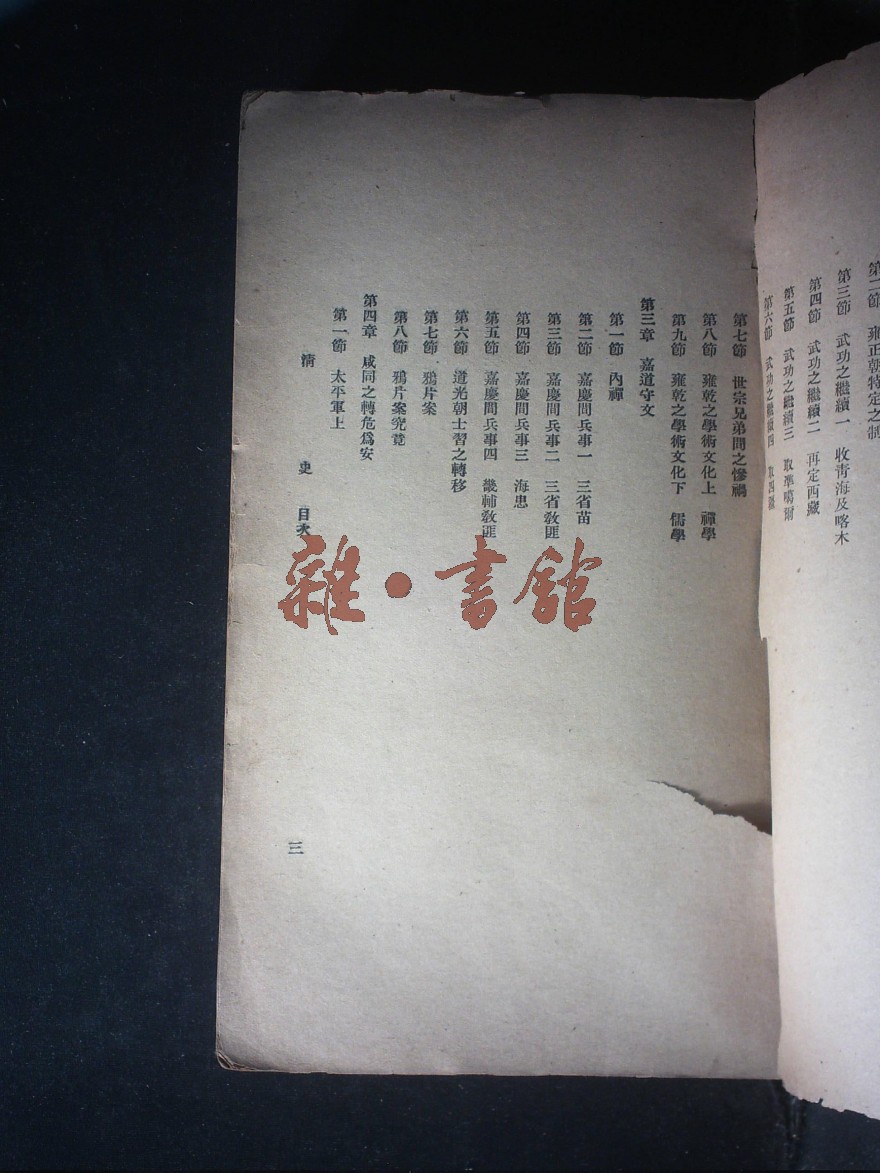 第二節　雍正朝特定之制
第三節　武功之繼續一　收靑海及喀木
第四節　武功之繼續二　再定西藏
第五節　武功之繼續三　取準噶爾
第六節　武功之繼續四　取回疆
第七節　世宗兄弟間之慘禍
第八節　雍乾之學術文化上　禪學
第九節　雍乾之學術文化下　儒學
第三章　嘉道守文
第一節　內禪
第二節　嘉慶間兵事一　三省苗
第三節　嘉慶間兵事二　三省敎匪
第四節　嘉慶間兵事三　海忠
第五節　嘉慶間兵事四　畿輔敎匪
第六節　道光朝士習之轉移
第七節　鴉片案
第八節　鴉片案究竟
第四章　咸同之轉危爲安
第一節　太平軍上
清　史　目次
三
雜•書館